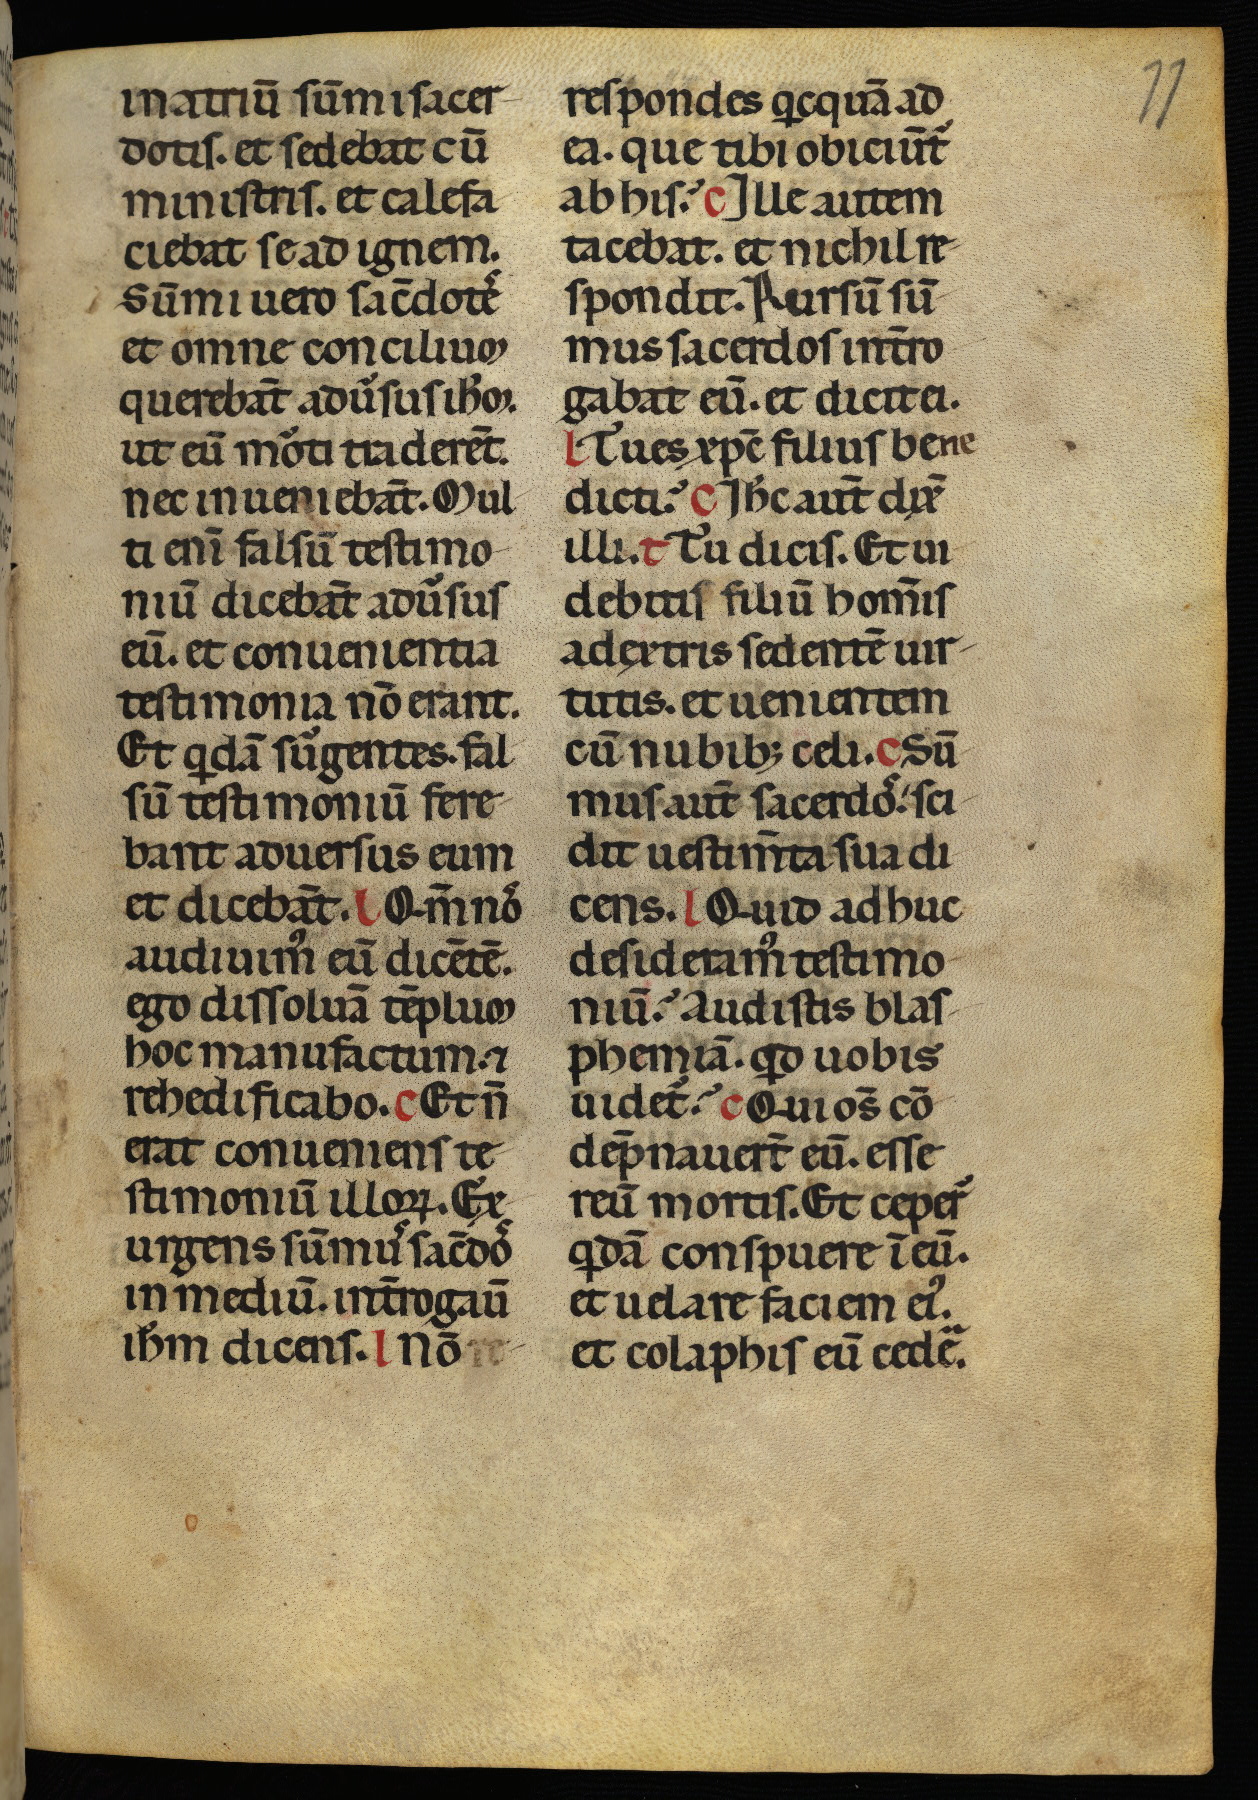 11
in atriū sūmi sacer
dotis. et sedebat cū
ministris. et calefa
ciebat se ad ignem.
Sūmi uero sac̄dotes
et omne concilium
querebāt adūsus ihm.
ut eū moti traderēt.
nec inueniebāt. Mul
ti eni falsū testimo
niū dicebāt adūsus
eū. et conuenientia
testimonia nō erant.
Et qdā sugentes. fal
sū testimoniū fere
bant aduersus eum
et dicebāt. l Qm̄ nos
audiuim᾿ eū dicētē.
ego dissoluā tēplum
hoc manufactum. ⁊
rehedificabo. c Et n̄
erat conueniens te
stimoniū illoꝝ. Ex
urgens sūmus sac̄dos
in mediū. int̄rogaū
ihm dicens. l Nō re
respondes qcquā ad
ea. que tibi obiciūt
ab his? c Ille autem
tacebat. et nichil re
spondit. Rursū sū
mus sacerdos int̄ro
gabat eū. et dicit ei.
l Tu es xpc̄ filius bene
dicti? c Ihc aut̄ dix̄
illi. t Tu dicis. Et ui
debitis filiū hom̄is
adextris sedentē uir
tutis. et uenientem
cū nubibꝫ celi. c Sū
mus aut̄ sacerdos sci
dit uestim̄ta sua di
cens. l Quid adhuc
desideram᾿ testimo
niū? Audistis blas
phemiā. qd uobis
uidet? c Qui os̄ cō
dep̄nauert̄ eū. esse
reū mortis. Et ceper
qdā conspuere ī eū.
et uelare faciem ei᾿.
et colaphis eū cedē.